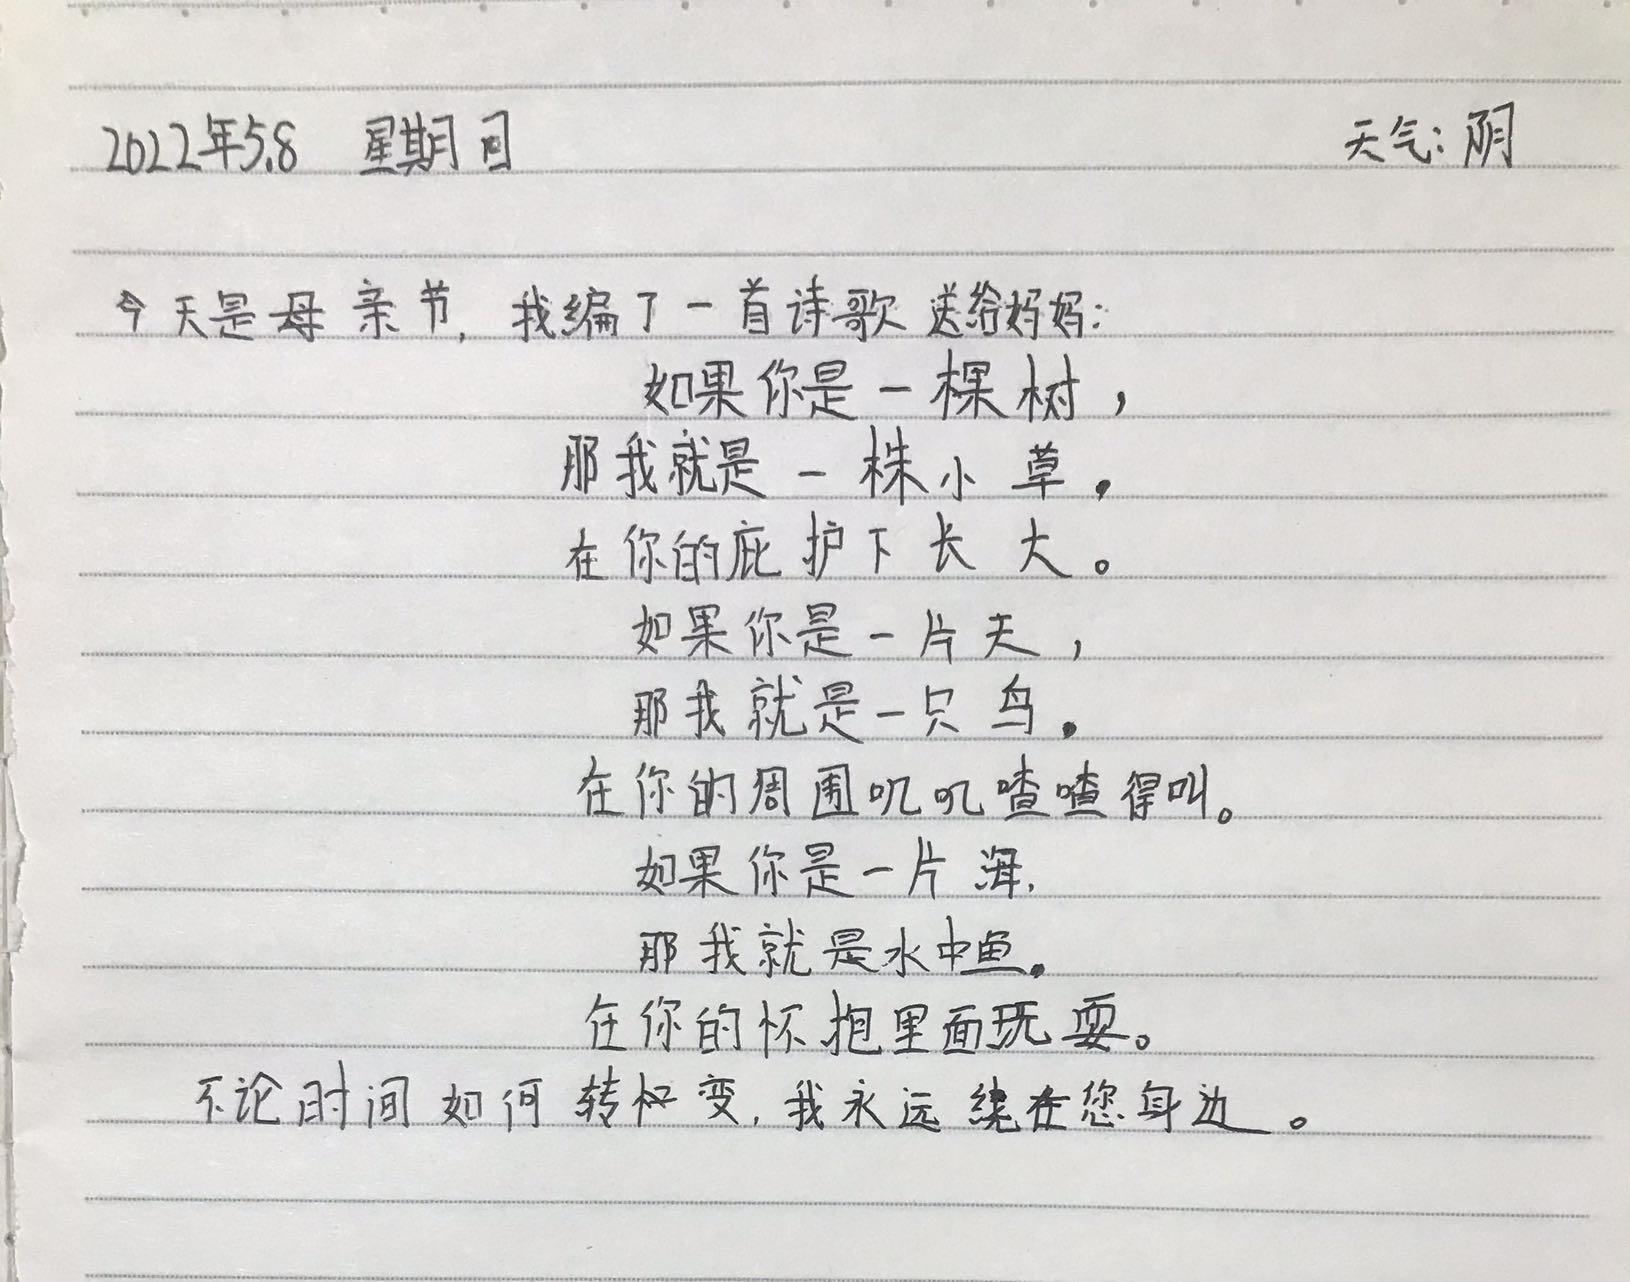 2022年5.8 星期日 天气:阴
今天是母亲节,我编了一首诗歌送给妈妈:
如果你是一棵树,
那我就是一株小草。
在你的庇护下长大。
如果你是一片天,
那我就是一只鸟。
在你的周围叽叽喳喳得叫。
如果你是一片海,
那我就是水中鱼。
在你的怀抱里面玩耍。
不论时间如何转和变,我永远绕在您身边。